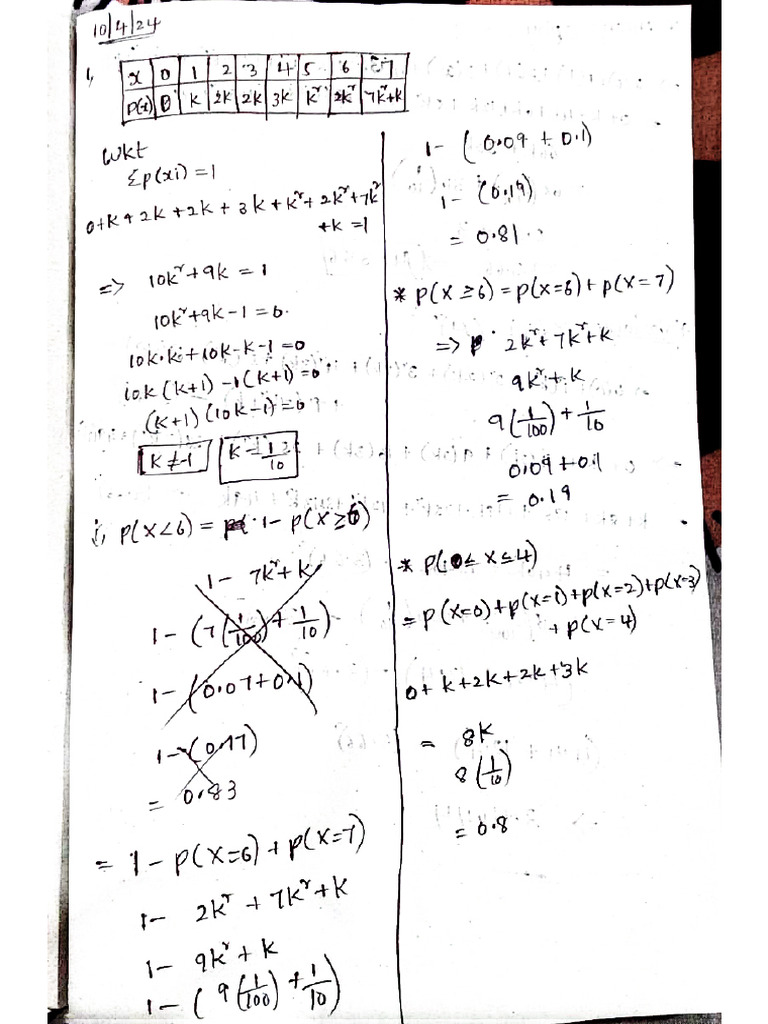 10/4/24
1, x 0 1 2 3 4 5 6 7
P(x) 0 k 2k 2k 3k k² 2k² 7k²+k
WKT
Σp(xi) = 1
0+k+2k+2k+3k+k²+2k²+7k²
+k = 1
=> 10k²+9k = 1
10k²+9k-1 = 0
10k·k+10k-k-1=0
10k(k+1)-1(k+1)=0
(k+1)(10k-1)=0
k≠-1 k=1/10
i, p(x<6) = 1-p(x≥6)
1- 7k²+k
1-(7(1/100)+1/10)
1-(0.07+0.1)
1-(0.17)
= 0.83
= 1-p(x=6)+p(x=7)
1- 2k²+7k²+k
1- 9k²+k
1-(9(1/100)+1/10)
1-(0.09+0.1)
1-(0.19)
= 0.81
* p(x≥6) = p(x=6)+p(x=7)
=> 2k²+7k²+k
9k²+k
9(1/100)+1/10
0.09+0.1
= 0.19
* p(0≤x≤4)
= p(x=0)+p(x=1)+p(x=2)+p(x=3)
+ p(x=4)
0+k+2k+2k+3k
= 8k
8(1/10)
= 0.8